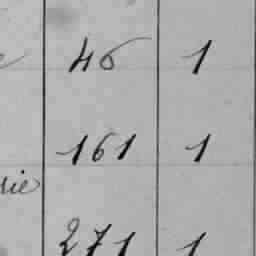 46 1
161 1
271 1